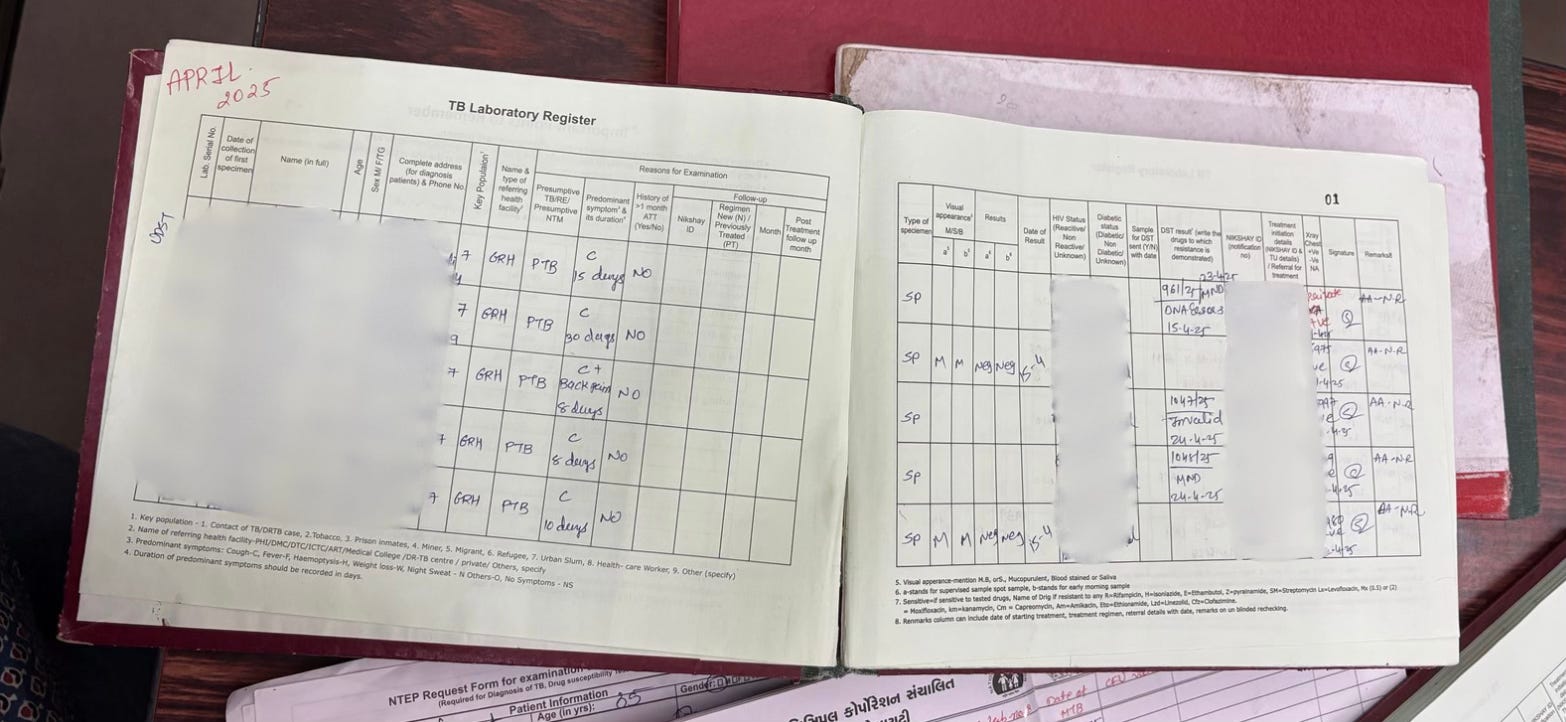 APRIL
2025
TB Laboratory Register
Lab. Serial No.
Date of collection of first specimen
Name (in full)
Age
Sex M/ F/TG
Complete address (for diagnosis patients) & Phone No.
Key Populaion¹
Name & type of referring health facility²
Reasons for Examination
Presumptive TB/RE/ Presumptive NTM
Predominant symptom³ & its duration⁴
History of >1 month ATT (Yes/No)
Follow-up
Nikshay ID
Regimen New (N) / Previously Treated (PT)
Month
Post Treatment follow up month
UDST
7 GRH PTB C 15 days NO
7 GRH PTB C 30 days NO
9
7 GRH PTB C + Back pain 8 days NO
7 GRH PTB C 8 days NO
7 GRH PTB C 10 days NO
1. Key population - 1. Contact of TB/DRTB case, 2.Tobacco, 3. Prison inmates, 4. Miner, 5. Migrant, 6. Refugee, 7. Urban Slum, 8. Health- care Worker, 9. Other (specify)
2. Name of referring health facility-PHI/DMC/DTC/ICTC/ART/Medical College /DR-TB centre / private/ Others, specify
3. Predominant symptoms: Cough-C, Fever-F, Haemoptysis-H, Weight loss-W, Night Sweat - N Others-O, No Symptoms - NS
4. Duration of predominant symptoms should be recorded in days.
01
Type of specimen
Visual appearance⁵
M/S/B
a⁶ b⁶
Results
a⁶ b⁶
Date of Result
HIV Status (Reacitive/ Non Reactive/ Unknown)
Diabetic status (Diabetic/ Non Diabetic/ Unknown)
Sample for DST sent (Y/N) with date
DST result⁷ (write the drugs to which resistance is demonstrated)
NIKSHAY ID (notification no)
Treatment initiation details (NIKSHAY ID & TU details) / Referral for treatment
Xray Chest +Ve -Ve NA
Signature
Remarks⁸
23-4-25
SP 961/25 MND
15-4-25
AA-N.R
SP M M Neg Neg 15-4 AA-N.R
SP 1047/25 Invalid 24-4-25 AA-N.R
SP 1048/25 MND 24-4-25 AA-N.R
SP M M Neg Neg 15-4 AA-N.R
5. Visual apperance-mention M.B, orS., Mucopurulent, Blood stained or Saliva
6. a-stands for supervised sample spot sample, b-stands for early morning sample
7. Sensitive=if sensitive to tested drugs, Name of Drig if resistant to any R=Rifampicin, H=isoniazide, E=Ethambutol, Z=pyrainamide, SM=Streptomycin Lx=Levofloxacin, Mx (0.5) or (2)
= Moxifloxacin, km=kanamycin, Cm = Capreomycin, Am=Amikacin, Eto=Ethionamide, Lzd=Linezolid, Cfz=Clofazimine.
8. Renmarks column can include date of starting treatment, treatment regimen, reterral details with date, remarks on un blinded rechecking.
NTEP Request Form for examination
(Required for Diagnosis of TB, Drug susceptibility
Patient Information
Age (in yrs): 35
Gender:
કોર્પોરેશન સંચાલિત
Date of
MTB